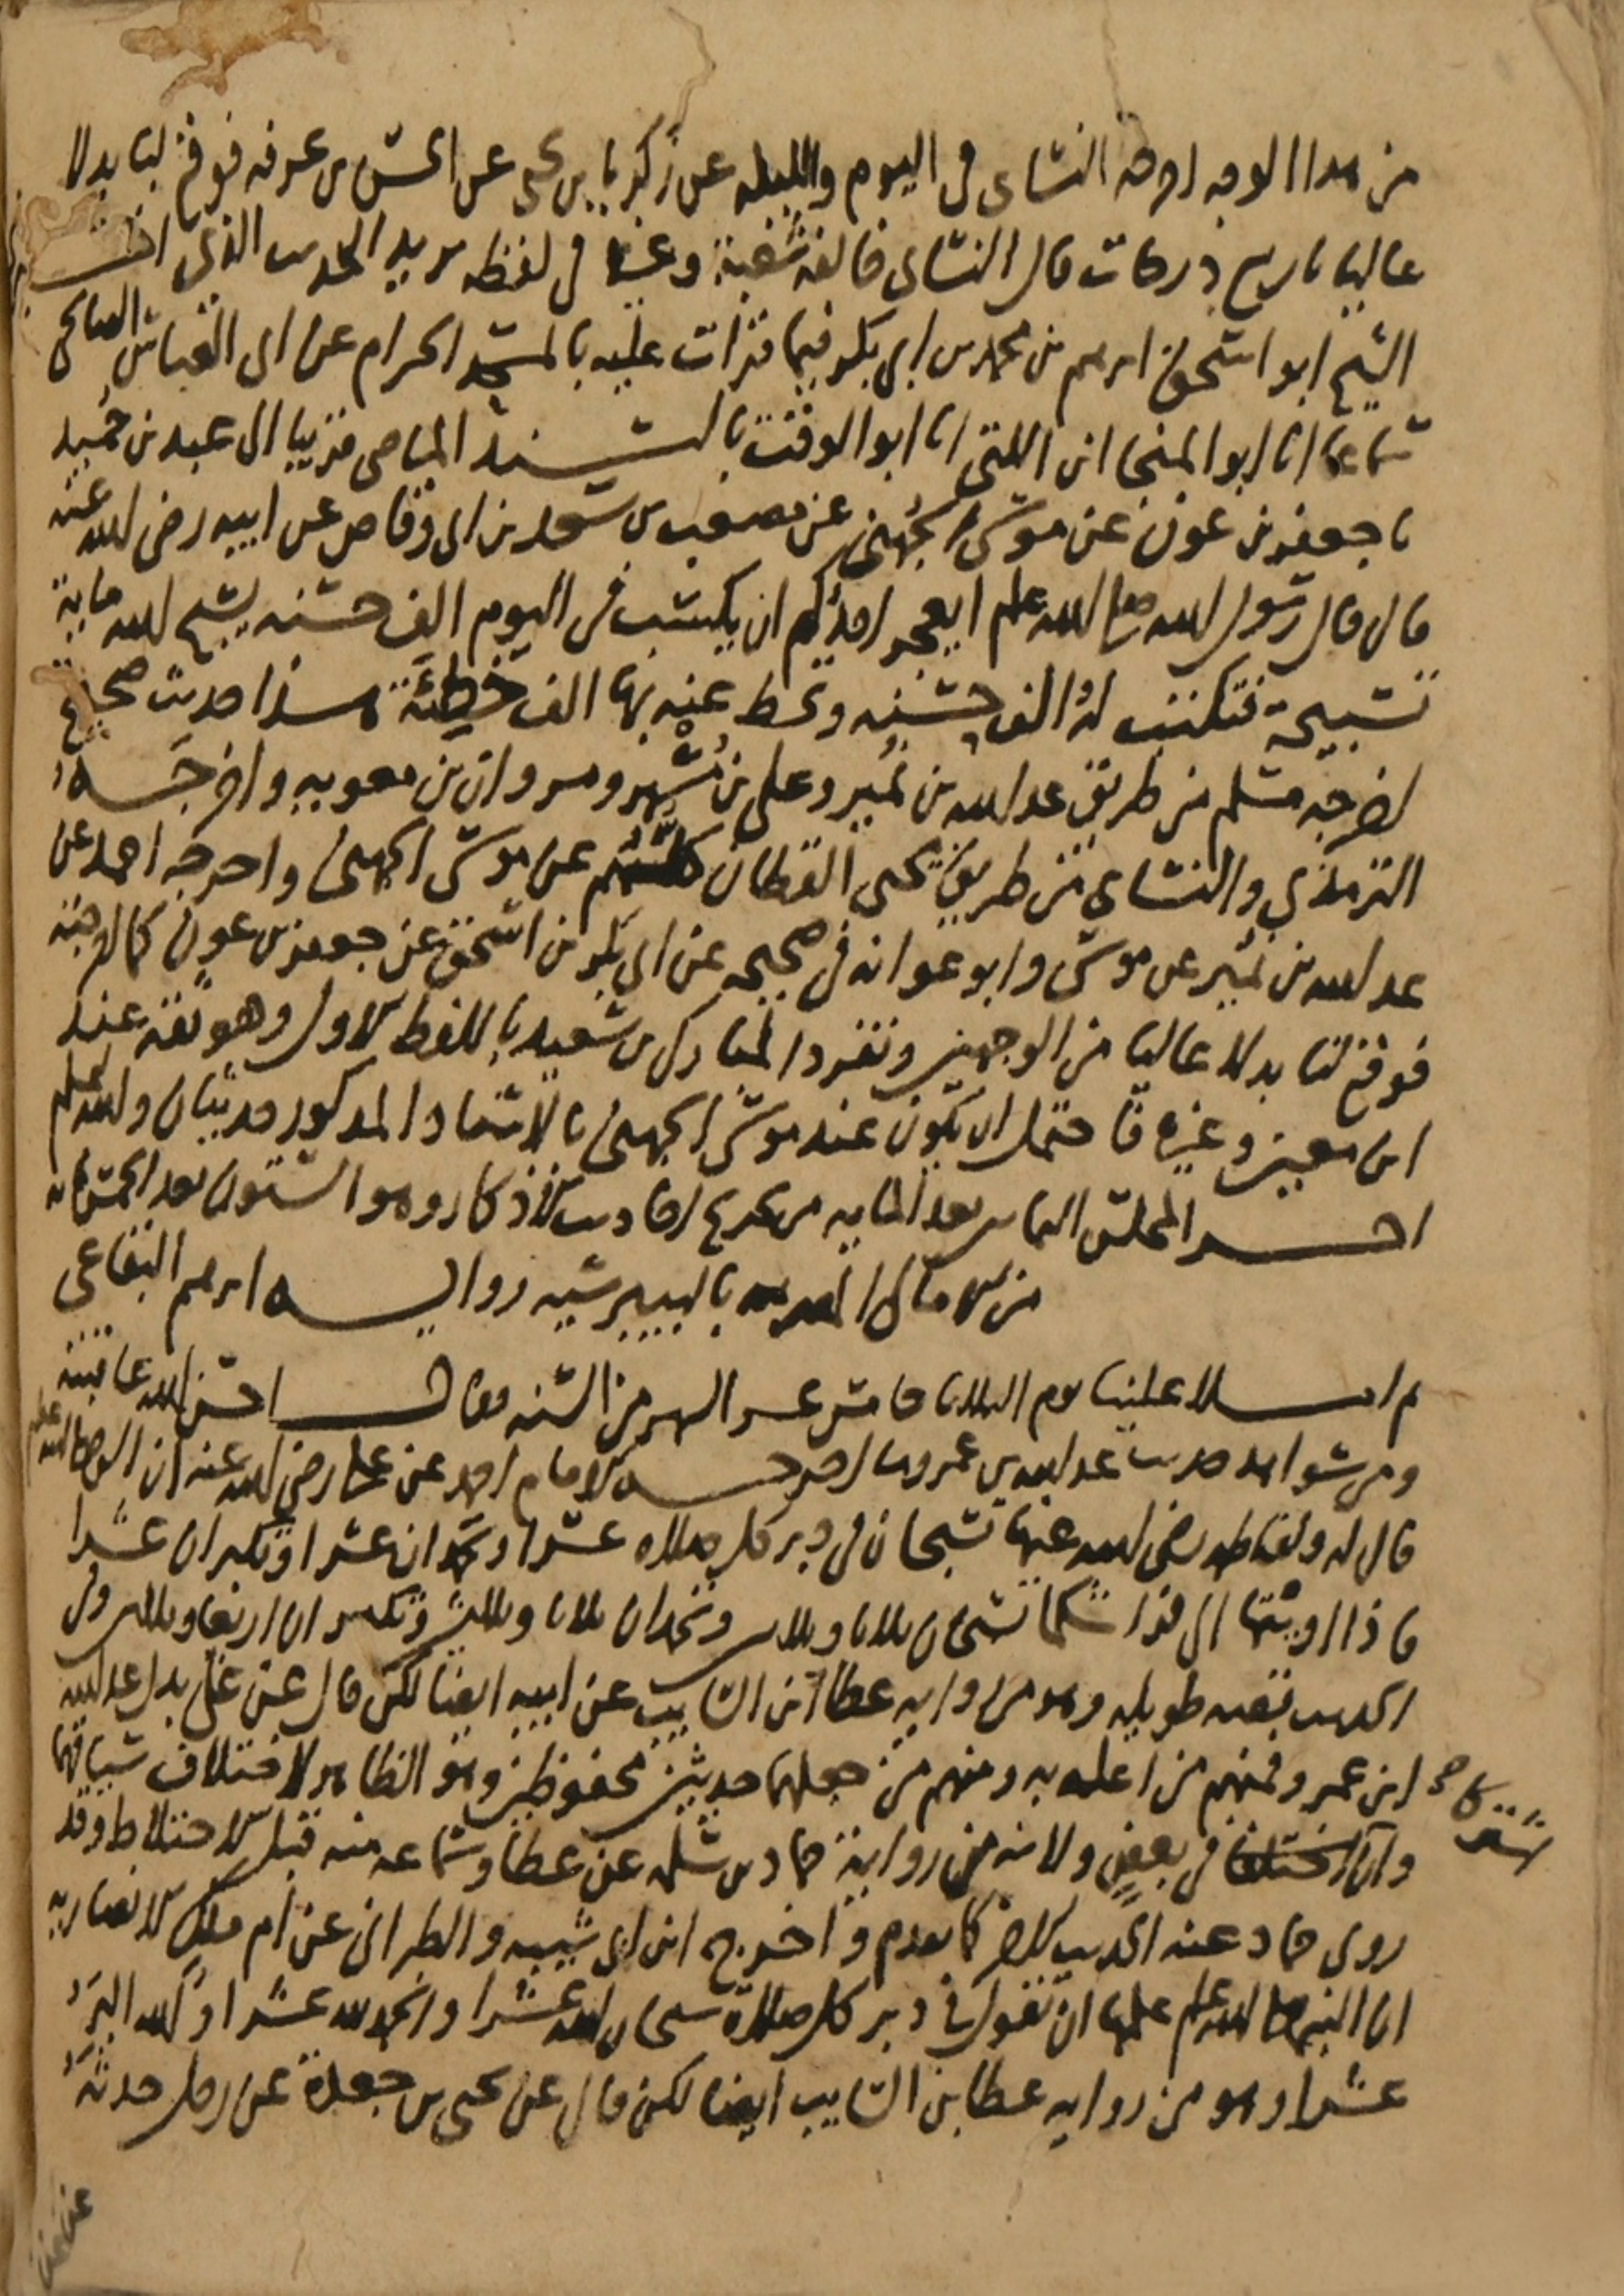 من هذا الوجه اخرجه النسائي في اليوم والليله عن زكريا بن يحيى عن الحسن بن عرفه فوقع لنا بدلا
عاليا بأربع درجات قال النسائي خالفه شعبة وغيره في لفظه يريد الحديث الذي
الشيخ ابو اسحق ابرهيم بن محمد بن ابي بكر فيما قرات عليه بالمسجد الحرام عن ابي العباس الصالحي
سماعا انا ابو المنجا ابن اللتي انا ابو الوقت بالسند الماضي قريبا الى عبد بن حُميد
نا جعفر بن عون عن موسى الجُهني عن مصعب بن سعد بن ابي وقاص عن ابيه رضي الله عنه
قال قال رسول الله صلى الله عليه وسلم ايعجز احدكم ان يكتسب في اليوم الف حسنه يسبح الله ماية
تسبيحة فتكتب له الف حسنه وتحط عنه بها الف خطيئة هذا حديث صحيح
اخرجه مسلم من طريق عبد الله بن نُمير وعلي بن مُسْهر ومروان بن معويه واخرجَه
الترمذي والنسائي من طريق يحيى القطان كلهم عن موسى الجهني واخرجه احمد عن
عبد الله بن نُمير عن موسى وابو عوانه في صحيحه عن ابي بكر بن اسحق عن جعفر بن عون كما اخرجته
فوقع لنا بدلا عاليا من الوجهين وتفرد المبارك بن سعيد باللفظ الاول وهو ثقة عند
ابن معين وغيره فاحتمل ان يكون عند موسى الجهني بالاسناد المذكور حديثان والله اعلم
اخر المجلس الثامن بعد المايه من تخريج احاديث الاذكار وهو الستون بعد الخمسمائة
من الامالي المصريه بالبيبرسيه روايه ابرهيم البقاعي
ثم املا علينا يوم الثلاثا خامس عشر الشهر من السنه فقال احسن الله عاقبته
ومن شواهد حديث عبد الله بن عمرو ما اخرجه الامام احمد عن علي رضي الله عنه ان النبي صلى الله عليه وسلم
قال له ولفاطمه رضي الله عنهما تسبحان في دبر كل صلاه عشرا وتحمدان عشرا وتكبران عشرا
فاذا اويتما الى فراشكما تسبحان ثلاثا وثلاثين وتحمدان ثلاثا وثلاثين وتكبران اربعا وثلاثين وفي
الحديث قصه طويله وهو من روايه عطا بن السايب عن ابيه ايضا لكن قال عن علي بدل عبد الله
ابن عمرو فمنهم من اعله به ومنهم من جعلهما حديثين محفوظين وهو الظاهر لاختلاف سياقهما
وان اشتركا في بعضٍ ولانه من رواية حماد بن سلمه عن عطا وسماعه منه قبل الاختلاط وقد
روى حماد عنه الحديث الاخر كما تقدم واخرج ابن ابي شيبه والطبراني عن ام ملك الانصاريه
ان النبي صلى الله عليه وسلم علمها ان تقول في دبر كل صلاة سبحان الله عشرا والحمد لله عشرا والله اكبر
عشرا وهو من روايه عطا بن السايب ايضا لكن قال عن يحيى بن جعدة عن رجل حدثه